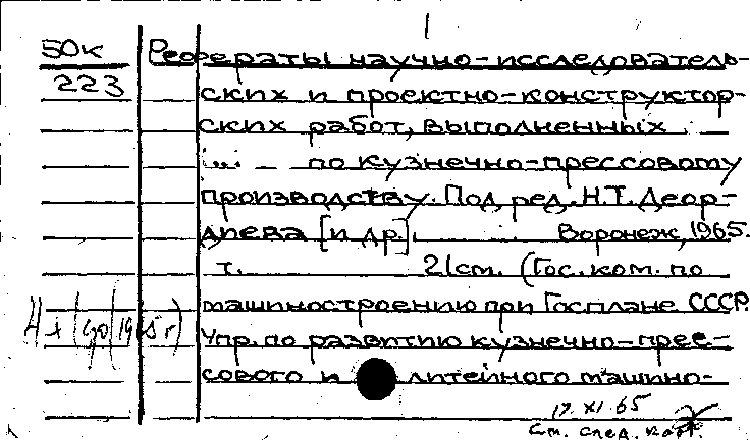 50к Рефераты научно-исследователь-
223 ских и проектно-конструктор-
ских работ, выполненных
... по кузнечно-прессовому
производству. Под ред. Н.Т. Деор-
диева [и др.] Воронеж, 1965.
т. 21см. (Гос. ком. по
машиностроению при Госплане СССР.
Упр. по развитию кузнечно-прес-
сового и литейного машино-
17 XI 65
См. след. карт.